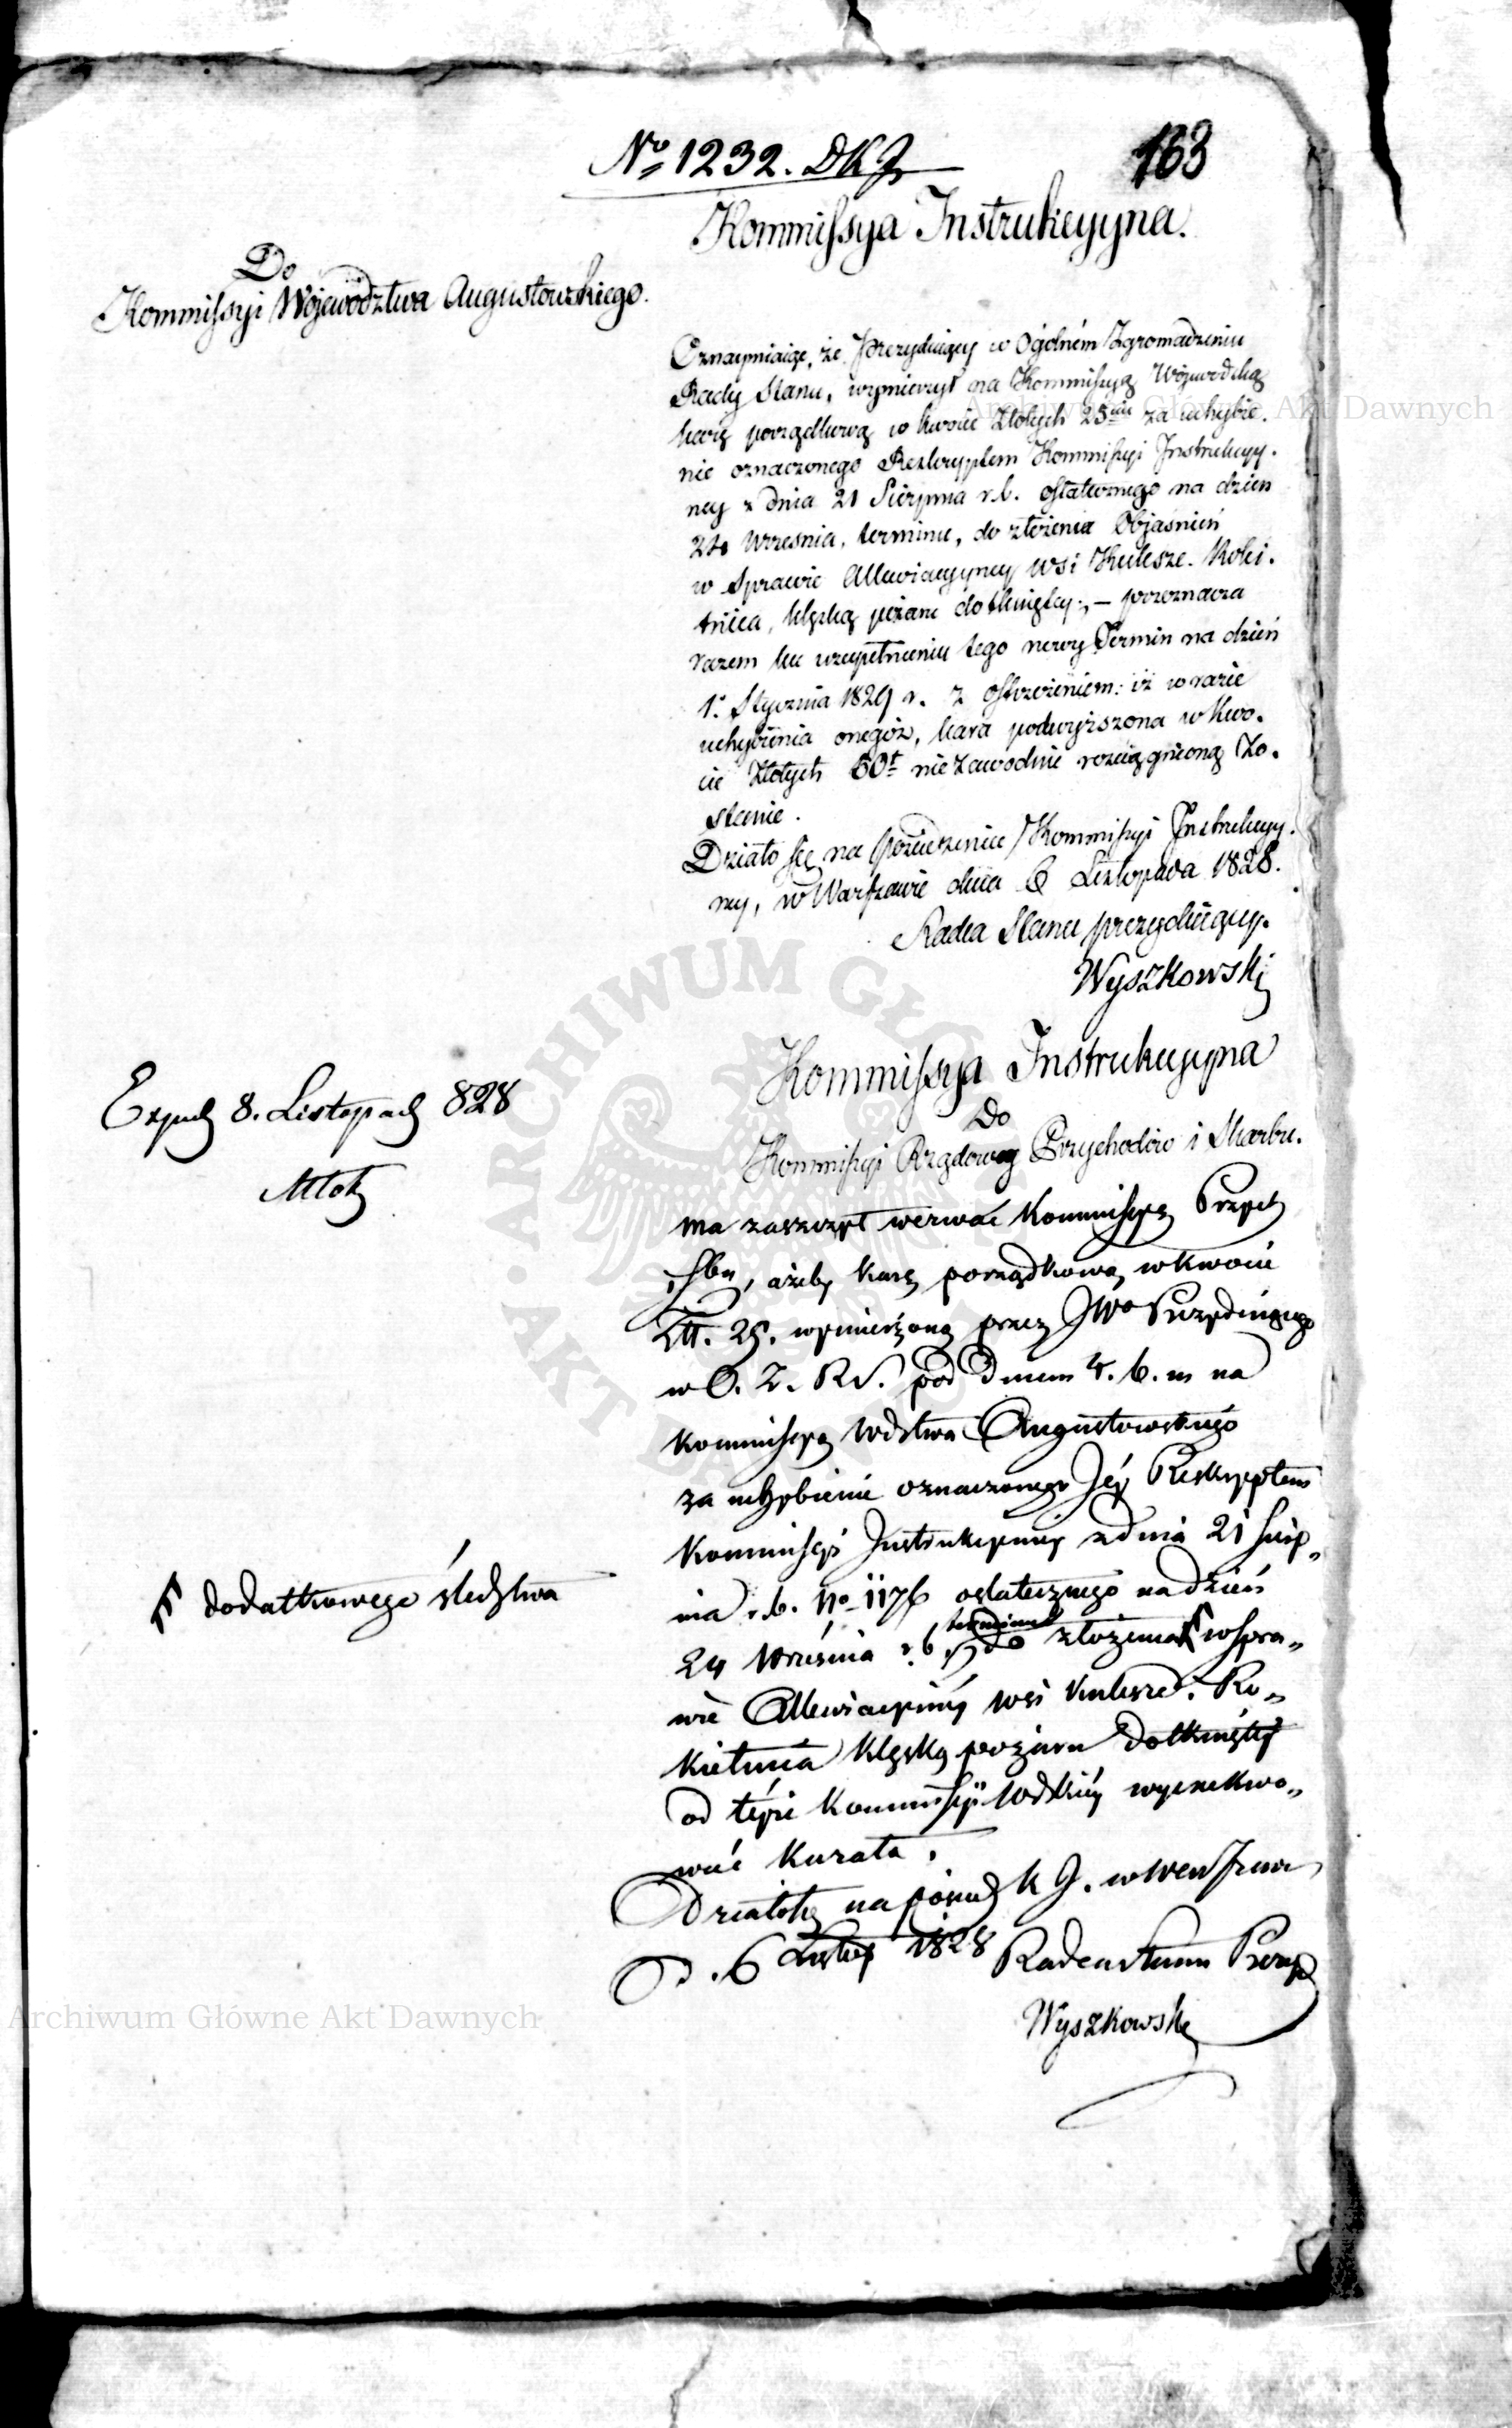 No 1232. DKJ
163
Kommissya Instrukcyyna.
Do
Kommissyi Województwa Augustowskiego.
Oznaymiaiąc, że Prezyduiący w Ogólném Zgromadzeniu
Rady Stanu, wymierzył na Kommissyą Wojewódzką
karę porządkową w kwocie Złotych 25ciu za uchybie-
nie oznaczonego Reskryptem Kommissyi Instrukcyy-
ney z dnia 21 Sierpnia r.b. ostatecznego na dzien
24 Wrzesnia, terminu, do złożenia Objaśnień
w Sprawie Allewiacyyney wsi Kulesze-Roki-
tnica, klęską pożaru dotkniętey; — przeznacza
razem ku uzupełnieniu tego nowy Termin na dzień
1o Stycznia 1829 r. z ostrzeżeniem: iż w razie
uchybienia onegóż, kara podwyższona w kwo-
cie Złotych 50t niezawodnie rozciągnioną zo-
stanie.
Działo się na posiedzeniu Kommissyi Instrukcyy-
ney, w Warszawie dnia 6 Listopada 1828.
Radca Stanu prezyduiący.
Wyszkowski
Kommissya Instrukcyyna
Do
Kommissyi Rządowey Przychodów i Skarbu.
Exped 8. Listopad 828
Młok
ma zaszczyt wezwać Kommissyą Przych
i Sbu, ażeby karę porządkową w kwocie
Złł. 25. wymierzoną przez JWo Prezyduiącego
w O. Z. R S. pod dniem 4. b. m na
Kommissyą Wdztwa Augustowskiego
za uchybienie oznaczonego Jéy Reskryptem
Kommissyi Instrukcyiney z dnia 21 Sierp„
nia r.b. No 1176 ostatecznego na dzień
24 Września r.b. terminu do złożenia w Spra„
dodatkowego śledztwa
wie Allewiacyiney wsi Kulesze-Ro„
kietnica klęską pożaru dotkniętéy
od téyże Kommissyi Wdzkiéy wyexekwo„
wać kazała.
Działo się na posied K J. w Warszawie
D. 6 Listop 1828 Radca Stanu Prezyd
Wyszkowski
Archiwum Główne Akt Dawnych
Archiwum Główne Akt Dawnych
ARCHIWUM GŁÓWNE AKT DAWNYCH